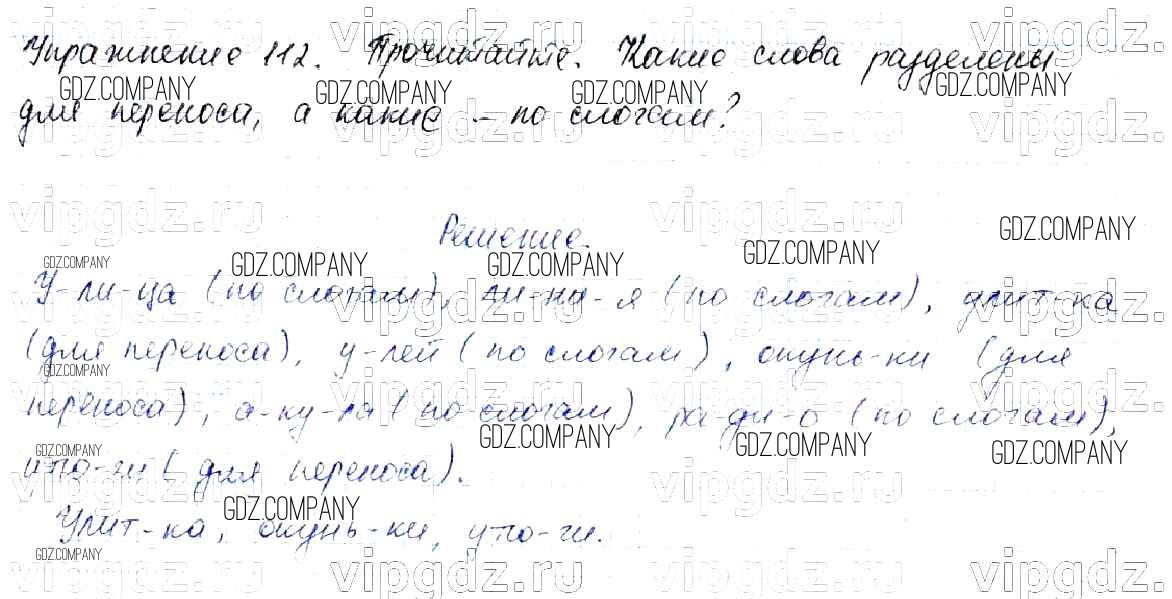 Упражнение 112. Прочитайте. Какие слова разделены
для переноса, а какие - по слогам?
Решение.
У-ли-ца (по слогам), ли-ни-я (по слогам), улит-ка
(для переноса), у-лей (по слогам), окунь-ки (для
переноса), а-ку-ла (по слогам), ра-ди-о (по слогам),
утю-ги (для переноса).
Улит-ка, окунь-ки, утю-ги.
vipgdz.ru
GDZ.COMPANY